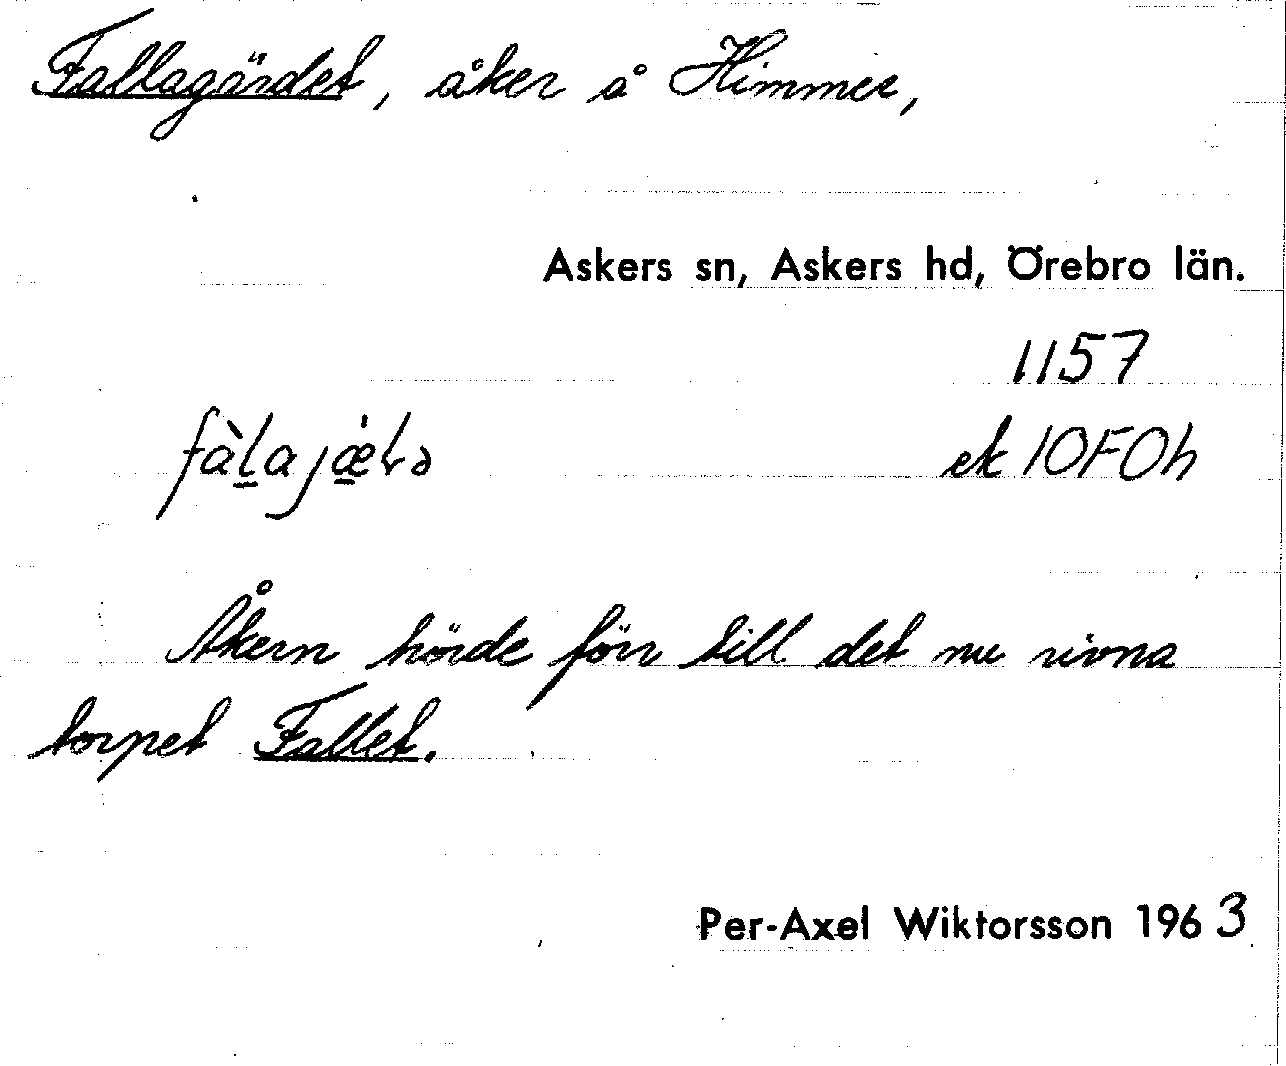 Fallagärdet, åker å Himmer,
Askers sn, Askers hd, Örebro län.
1157
ek 10F0h
Åkern hörde förr till det nu rivna
torpet Fallet.
Per-Axel Wiktorsson 1963